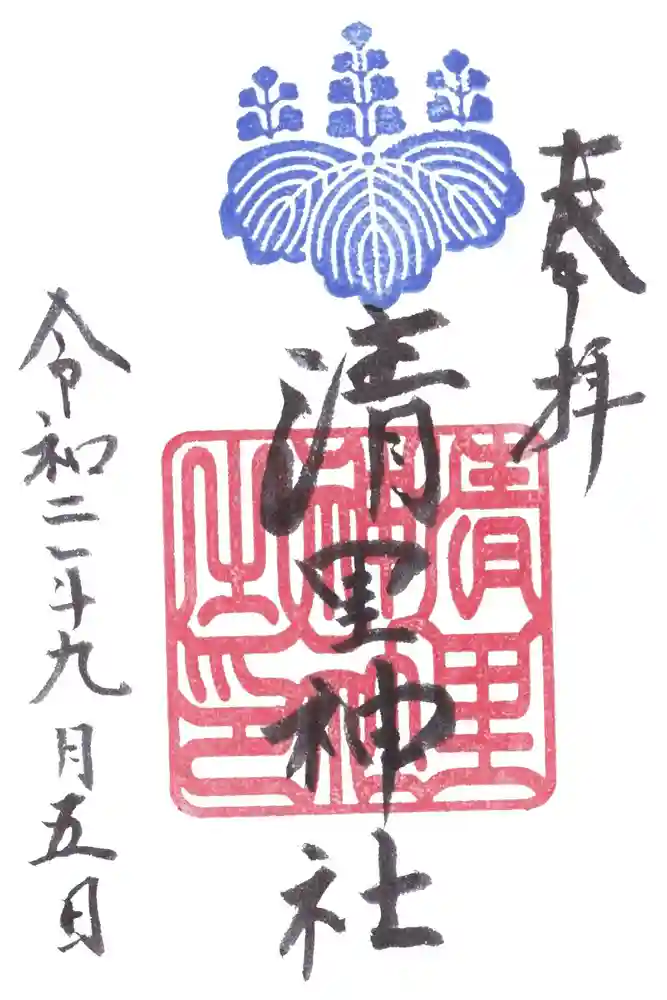 奉拝
清里神社
清里
神社
之印
令和二年九月五日